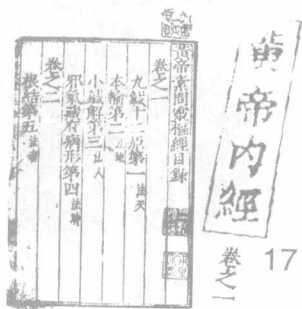 黄帝内經
卷之一
17
黄帝素問靈樞經目錄
卷之一
九鍼十二原第一法天
本輸第二法地
小鍼解第三法人
邪氣藏府病形第四法時
卷之二
根結第五法音